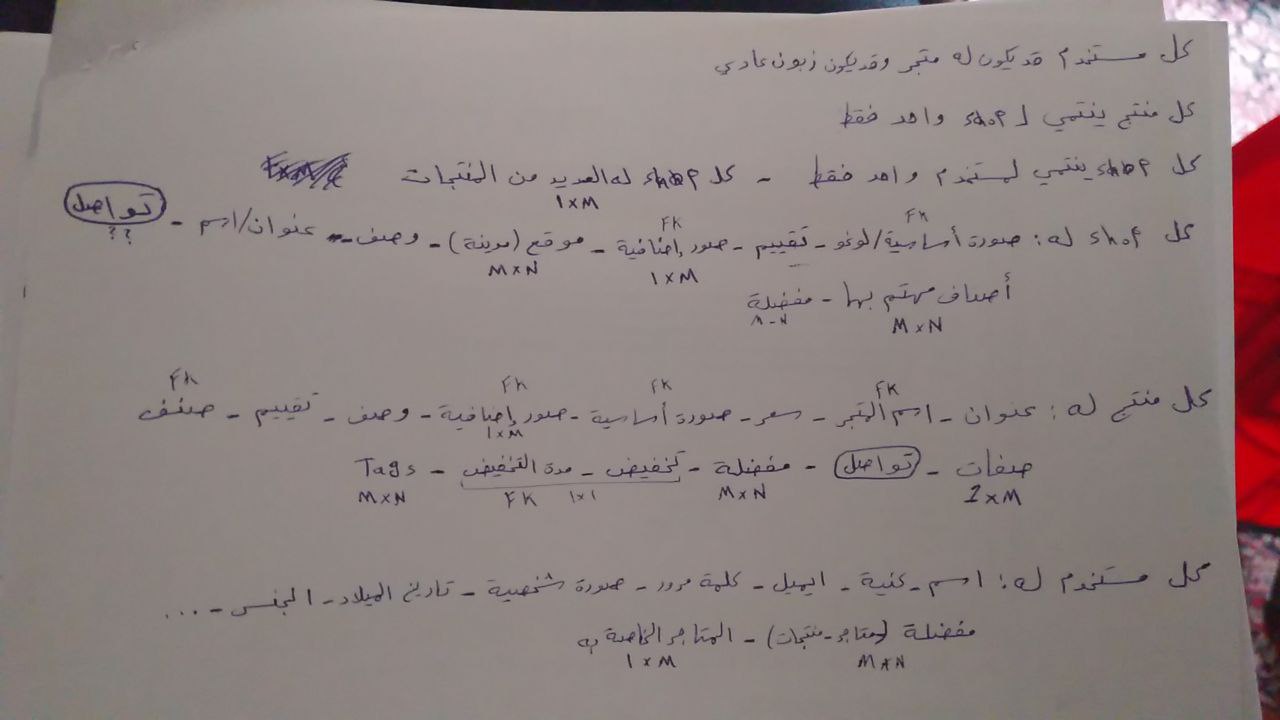 كل مستخدم قد يكون له متجر وقد يكون زبون عادي
كل منتج ينتمي ل shop واحد فقط
كل shop ينتمي لمستخدم واحد فقط - كل shop له العديد من المنتجات
1xM
تواصل
??
FK FK
كل shop له: صورة أساسية/لوغو - تقييم - صور إضافية - موقع (مدينة) - وصف - عنوان/اسم -
1xM MxN
أصناف مهتم بها - مفضلة
MxN M-N
FK FK FK FK
كل منتج له: عنوان - اسم المتجر - سعر - صورة أساسية - صور إضافية - وصف - تقييم - صنف
1xM
صفات - تواصل - مفضلة - تخفيض - مدة التخفيض - Tags
1xM MxN 1x1 FK MxN
كل مستخدم له: اسم - كنية - ايميل - كلمة مرور - صورة شخصية - تاريخ الميلاد - الجنس - ...
مفضلة (متاجر - منتجات) - المتاجر الخاصة به
MxN 1xM